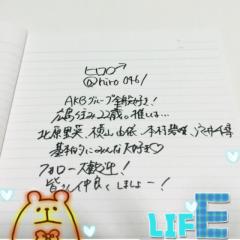 ヒロ♂
@hiro 0461
AKBグループ全般好き!
広島住み22歳。推しは…
北原里英、横山由依、木村
基本的にみんな大好き♡
フォロー大歓迎!
皆さん仲良くしましょー!
LIFE